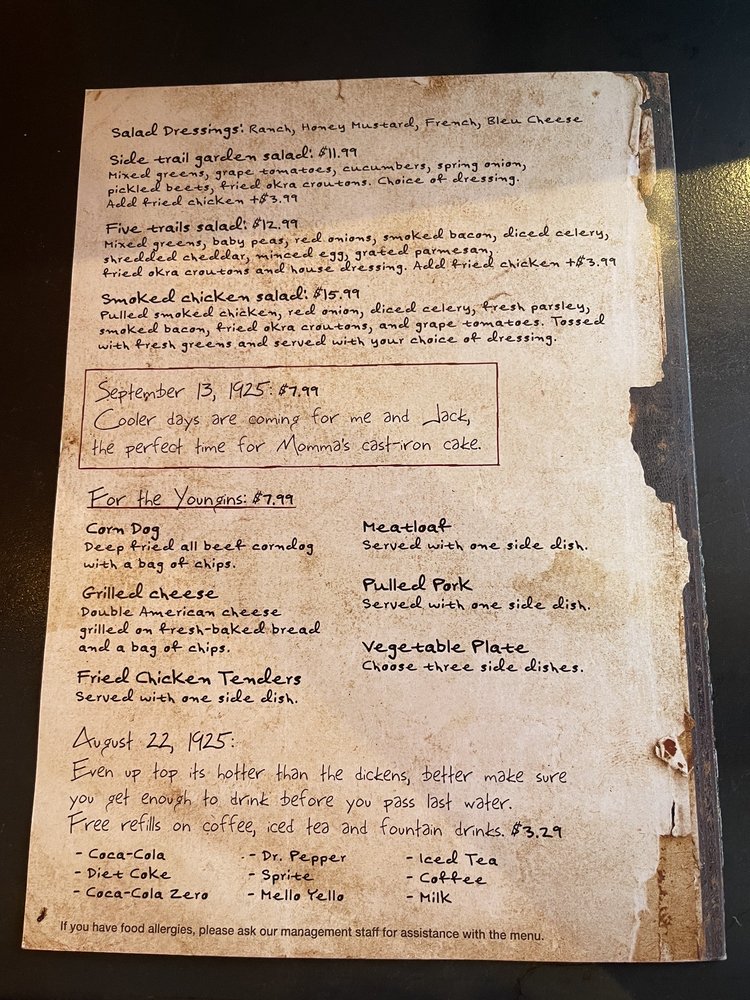 Salad Dressings: Ranch, Honey Mustard, French, Bleu Cheese
Side trail garden salad: $11.99
Mixed greens, grape tomatoes, cucumbers, spring onion,
pickled beets, fried okra croutons. Choice of dressing.
Add fried chicken +$3.99
Five trails salad: $12.99
Mixed greens, baby peas, red onions, smoked bacon, diced celery,
shredded cheddar, minced egg, grated parmesan,
fried okra croutons and house dressing. Add fried chicken +$3.99
Smoked chicken salad: $15.99
Pulled smoked chicken, red onion, diced celery, fresh parsley,
smoked bacon, fried okra croutons, and grape tomatoes. Tossed
with fresh greens and served with your choice of dressing.
September 13, 1925: $7.99
Cooler days are coming for me and Jack,
the perfect time for Momma's cast-iron cake.
For the Youngins: $7.99
Corn Dog
Deep fried all beef corndog
with a bag of chips.
Grilled cheese
Double American cheese
grilled on fresh-baked bread
and a bag of chips.
Fried Chicken Tenders
Served with one side dish.
Meatloaf
Served with one side dish.
Pulled Pork
Served with one side dish.
Vegetable Plate
Choose three side dishes.
August 22, 1925:
Even up top its hotter than the dickens, better make sure
you get enough to drink before you pass last water.
Free refills on coffee, iced tea and fountain drinks. $3.29
- Coca-Cola
- Diet Coke
- Coca-Cola Zero
- Dr. Pepper
- Sprite
- Mello Yello
- Iced Tea
- Coffee
- Milk
If you have food allergies, please ask our management staff for assistance with the menu.